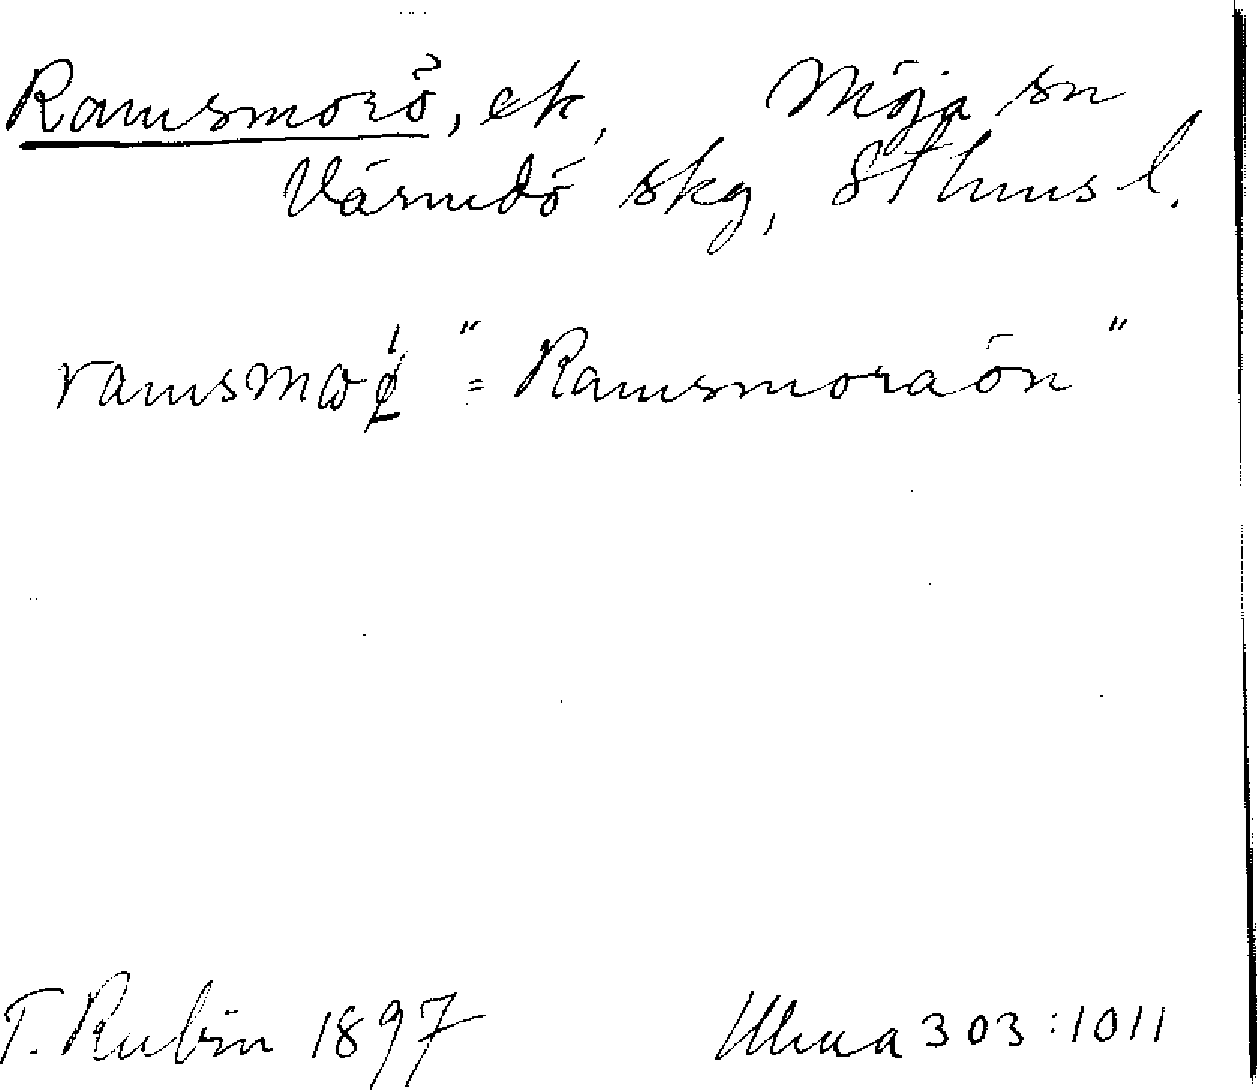 Ramsmorö, ek, Möja sn
Värmdö skg, Sthms l.
"Ramsmoraön"
T. Rubin 1897 Ulma 303:1011